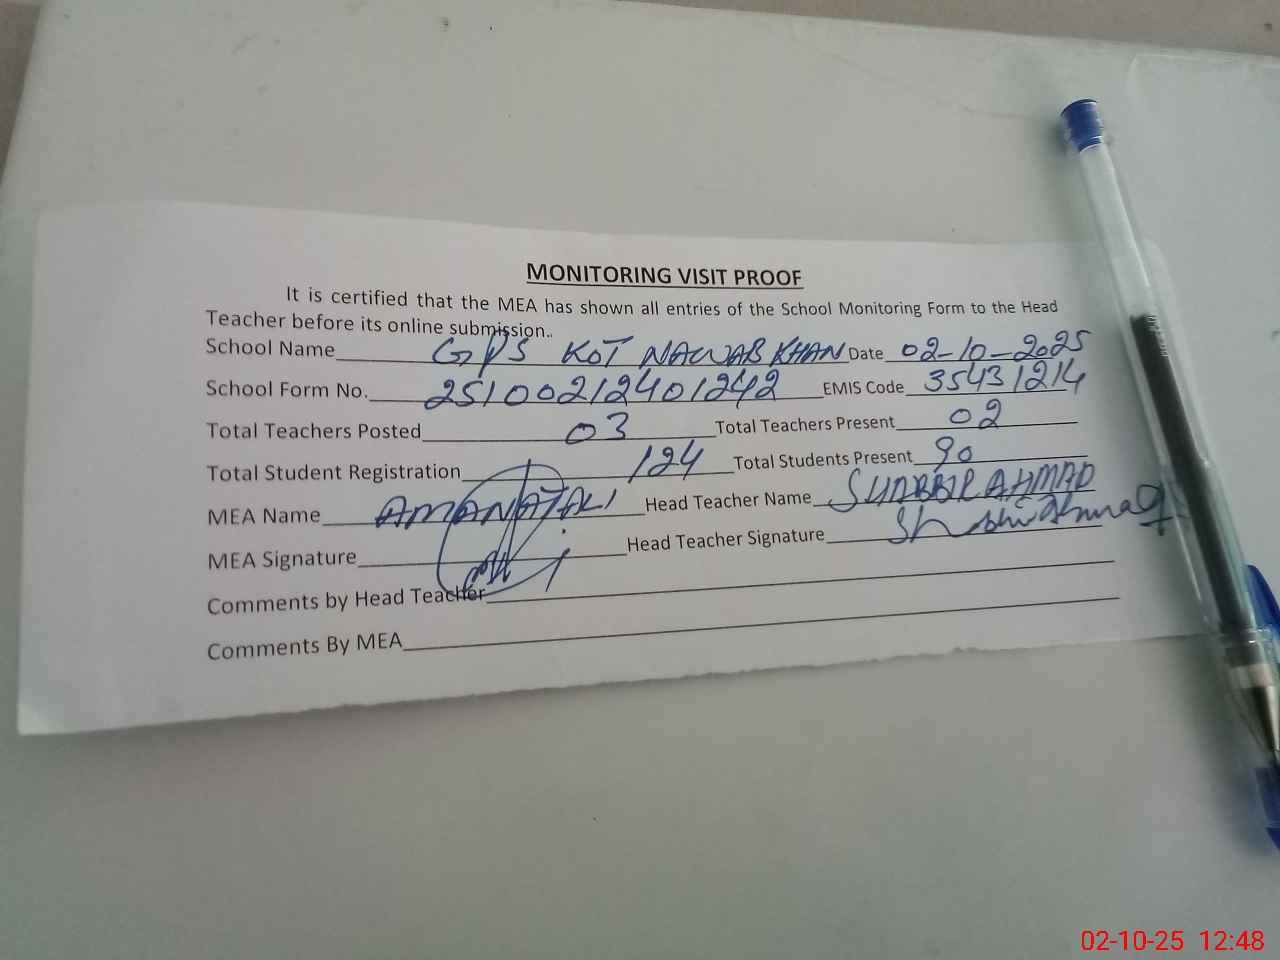 MONITORING VISIT PROOF
It is certified that the MEA has shown all entries of the School Monitoring Form to the Head
Teacher before its online submission..
School Name GPS KOT NAWAB KHAN Date 02-10-2025
School Form No. 25100212401242 EMIS Code 35431214
Total Teachers Posted 03 Total Teachers Present 02
Total Student Registration 124 Total Students Present 90
MEA Name AMANAT ALI Head Teacher Name SHABBIR AHMAD
MEA Signature Head Teacher Signature
Comments by Head Teacher
Comments By MEA
02-10-25 12:48